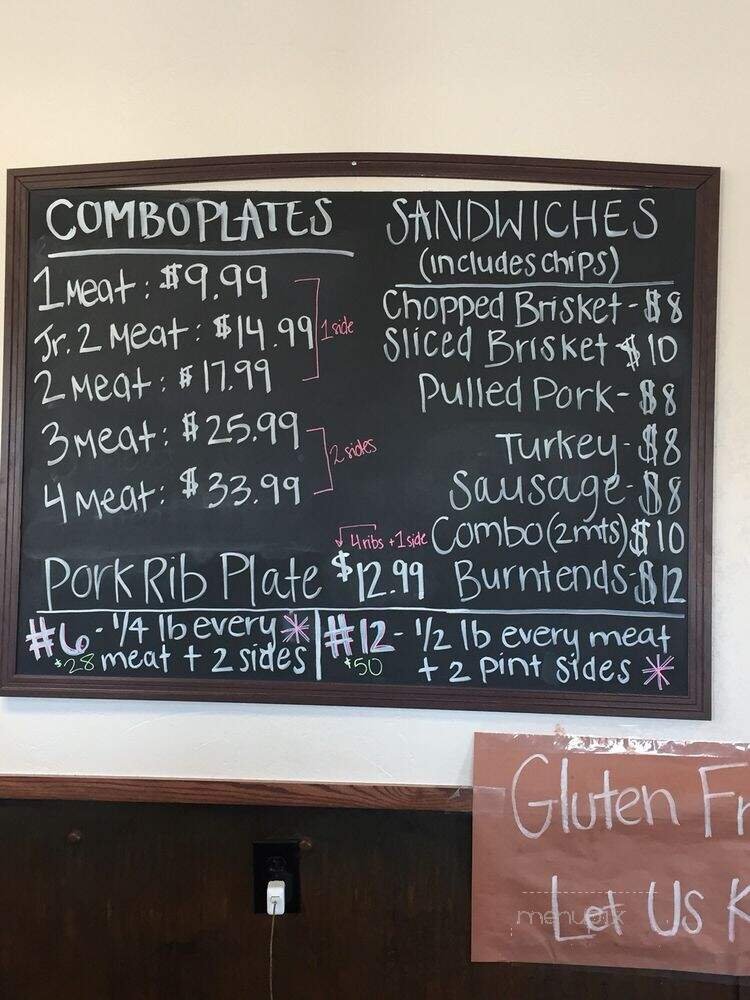 COMBO PLATES
1 Meat: $9.99
Jr. 2 Meat: $14.99
2 Meat: $17.99
1 side
3 Meat: $25.99
4 Meat: $33.99
2 sides
4 ribs + 1 side
Pork Rib Plate $12.99
SANDWICHES
(includes chips)
Chopped Brisket - $8
Sliced Brisket - $10
Pulled Pork - $8
Turkey - $8
Sausage - $8
Combo (2mts) $10
Burntends - $12
#6 - 1/4 lb every *
$28 meat + 2 sides
#12 - 1/2 lb every meat
$50 + 2 pint sides *
Gluten Fr
Let Us K
menupix